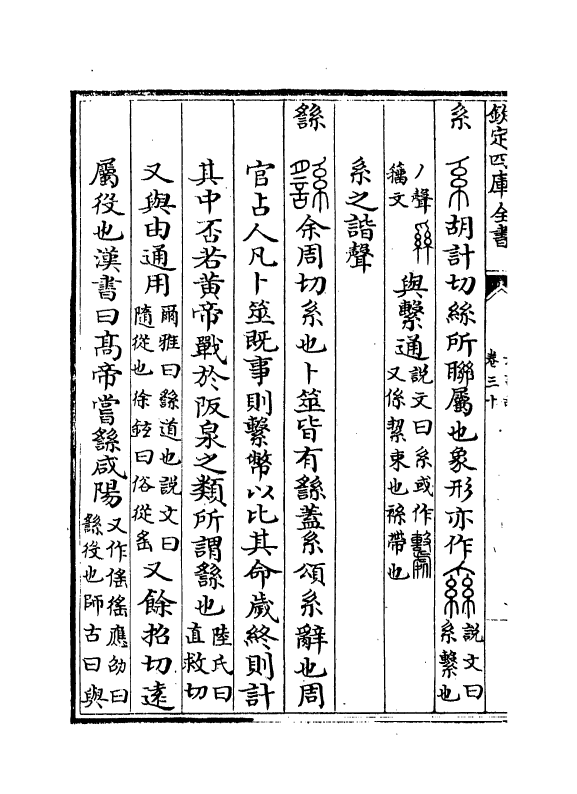 欽定四庫全書
卷三十
系 胡計切絲所聯屬也象形亦作 說文曰系繫也
丿聲 籒文 與繫通 說文曰系或作 又係絜束也 褖帶也
系之諧聲
繇 余周切系也卜筮皆有繇蓋系頌系辭也周
官占人凡卜筮既事則繫幣以比其命歲終則計
其中否若黄帝戰於阪泉之類所謂繇也 陸氏曰直救切
又與由通用 爾雅曰繇道也說文曰隨從也徐鉉曰俗從䍃 又餘招切逺
屬役也漢書曰髙帝嘗繇咸陽 又作傜徭應劭曰繇役也師古曰與